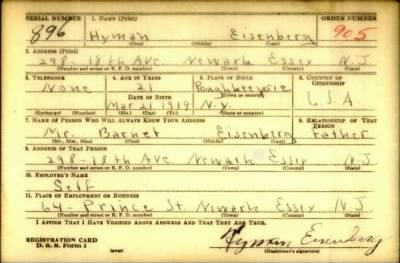 SERIAL NUMBER 1. NAME (Print) ORDER NUMBER
896 Hyman Eisenberg 905
(First) (Middle) (Last)
2. ADDRESS (Print)
298-18th Ave Newark Essex N.J.
(Number and street or R. F. D. number) (Town) (County) (State)
3. TELEPHONE 4. AGE IN YEARS 5. PLACE OF BIRTH 6. COUNTRY OF CITIZENSHIP
None 21 Poughkeepsie
DATE OF BIRTH (Town or county)
Mar. 21 1919 N.Y. USA
(Exchange) (Number) (Mo.) (Day) (Yr.) (State or country)
7. NAME OF PERSON WHO WILL ALWAYS KNOW YOUR ADDRESS 8. RELATIONSHIP OF THAT PERSON
Mr. Barnet Eisenberg Father
(Mr., Mrs., Miss) (First) (Middle) (Last)
9. ADDRESS OF THAT PERSON
298-18th Ave Newark Essex N.J.
(Number and street or R. F. D. number) (Town) (County) (State)
10. EMPLOYER'S NAME
Self
11. PLACE OF EMPLOYMENT OR BUSINESS
64- Prince St. Newark Essex N.J.
(Number and street or R. F. D. number) (Town) (County) (State)
I AFFIRM THAT I HAVE VERIFIED ABOVE ANSWERS AND THAT THEY ARE TRUE.
REGISTRATION CARD
D. S. S. Form 1 (over) Hyman Eisenberg
(Registrant's signature)